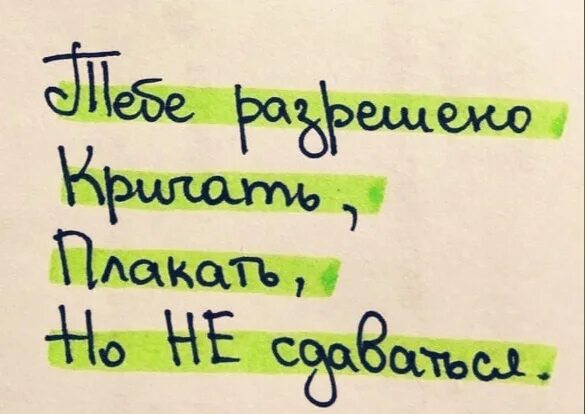 Тебе разрешено
Кричать,
Плакать,
Но НЕ сдаваться.